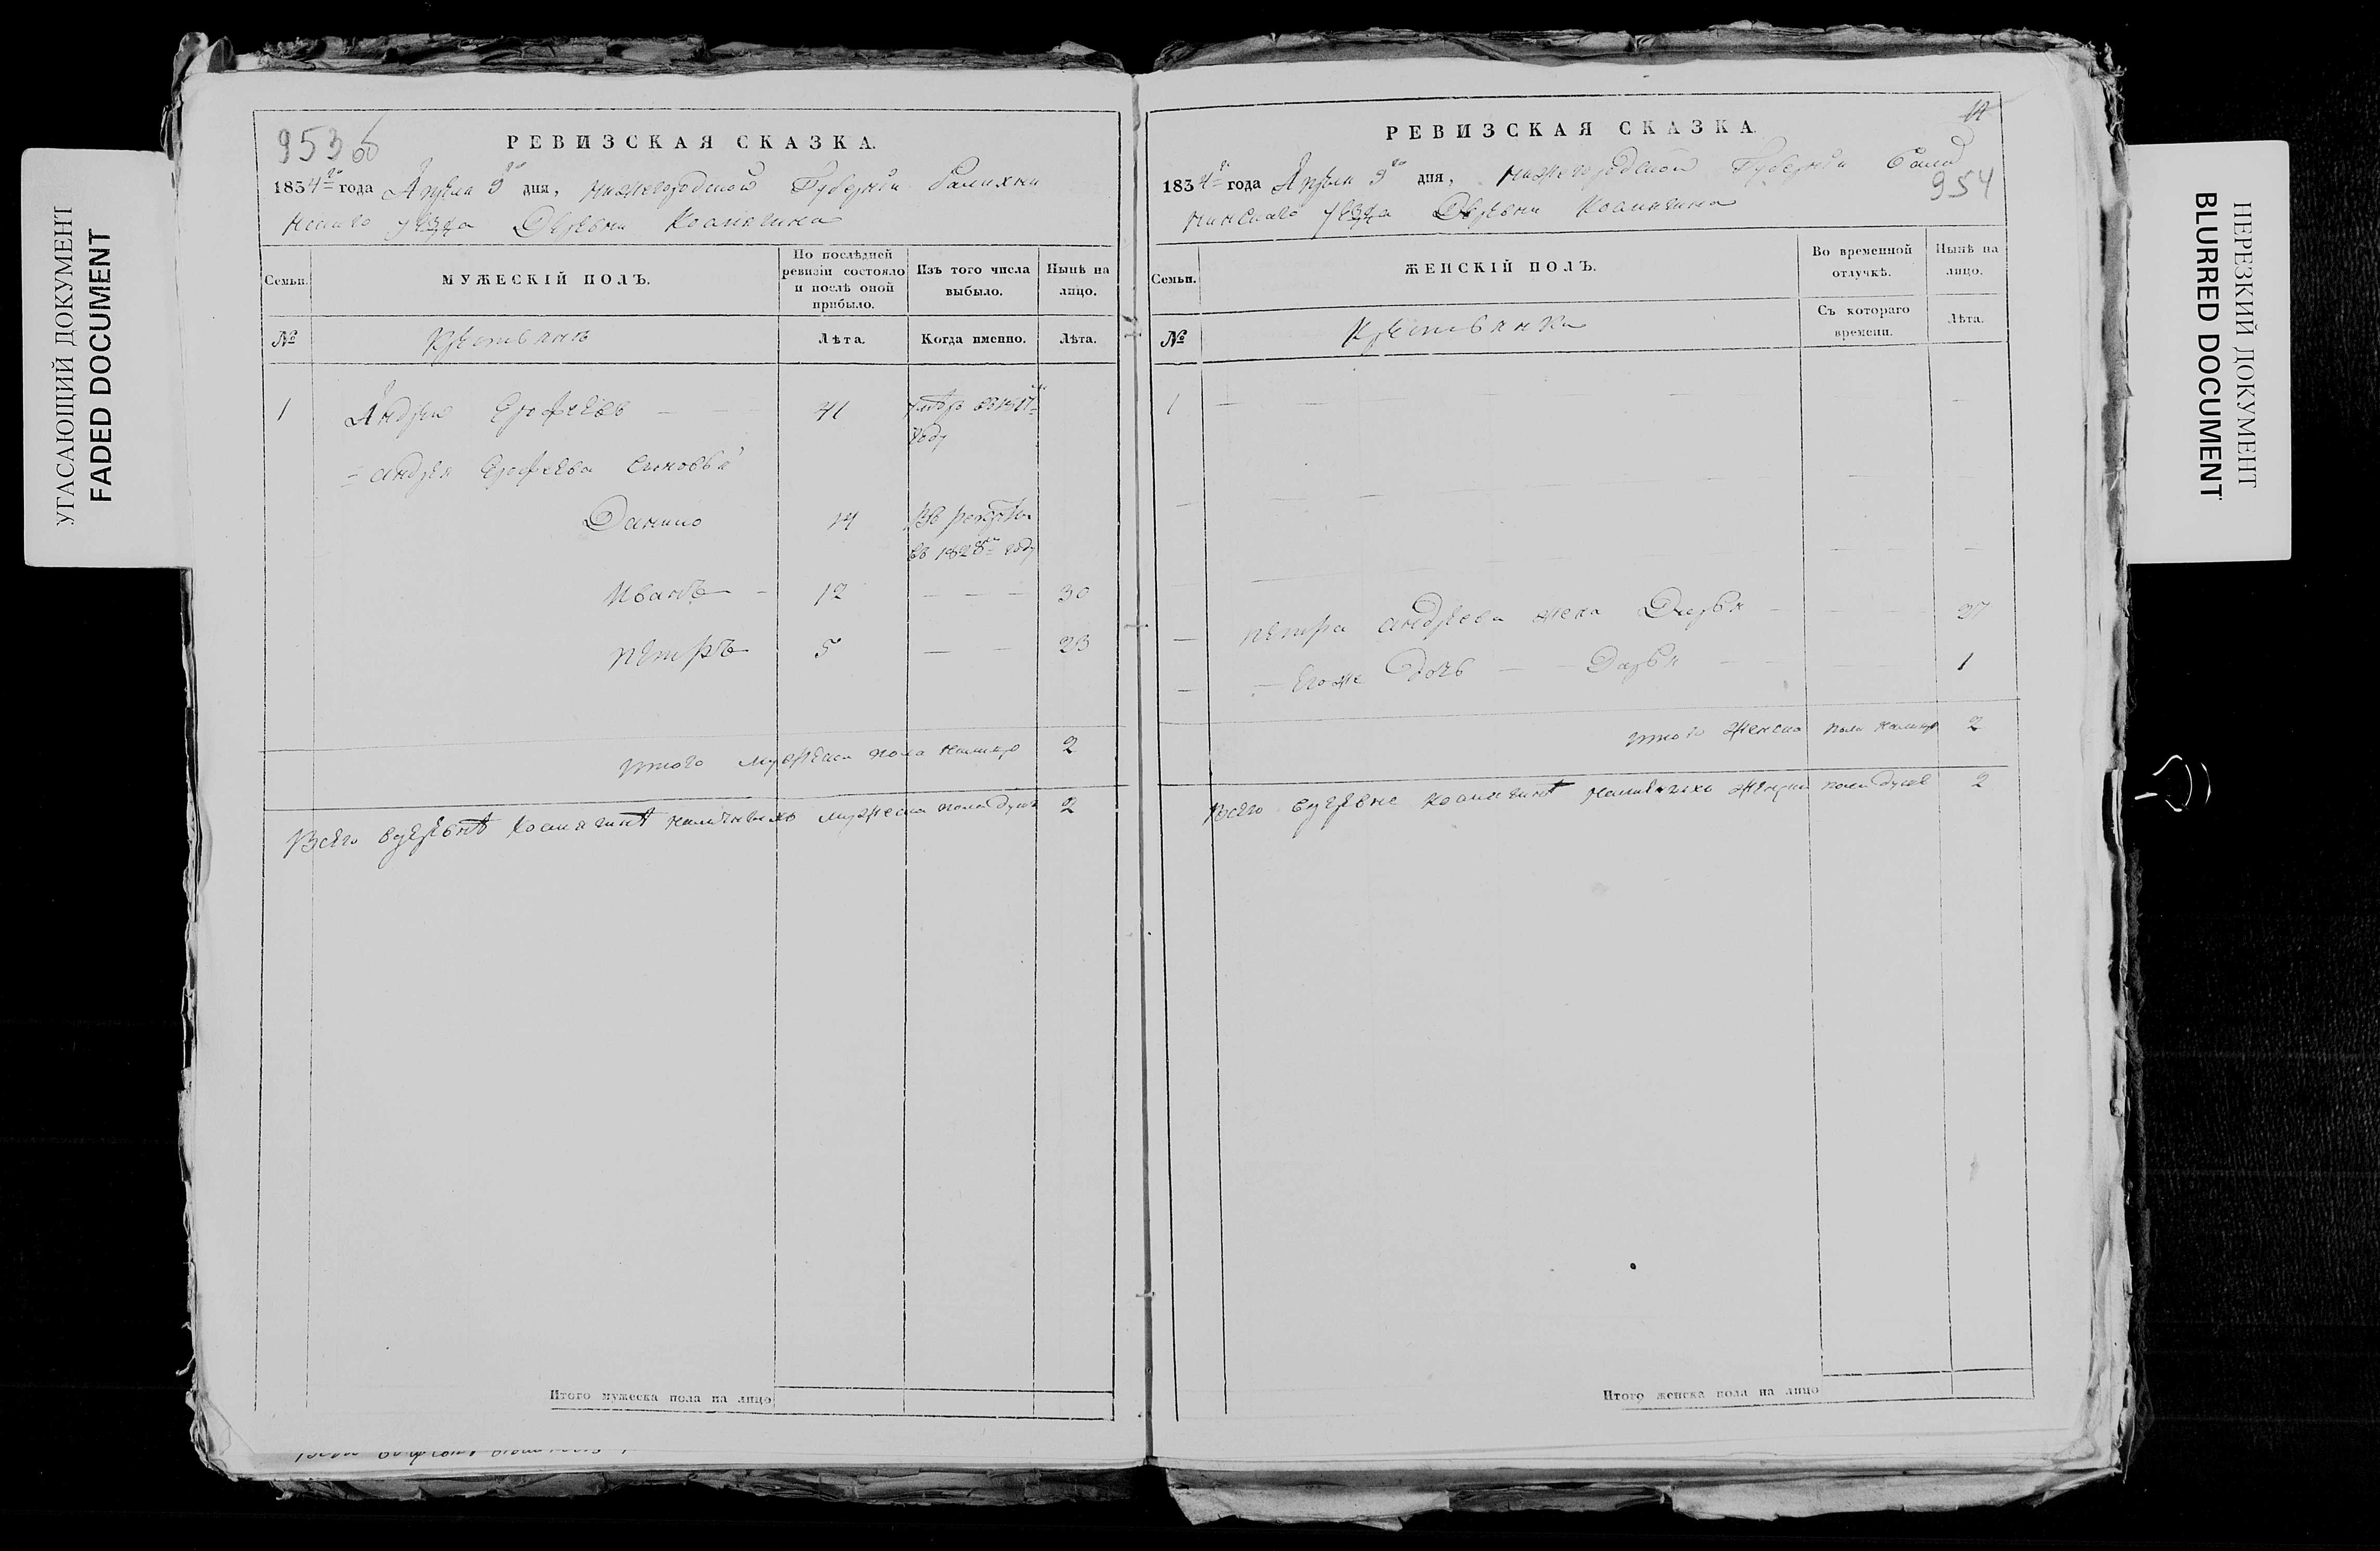 УГАСАЮЩИЙ ДОКУМЕНТ
FADED DOCUMENT
953 об
РЕВИЗСКАЯ СКАЗКА.
1834го года Апреля 9го дня, Нижегородской Губернии Балихни
нскаго уезда Деревни
Семьи.
МУЖЕСКІЙ ПОЛЪ.
По послѣдней ревизіи состояло и послѣ оной прибыло.
Изъ того числа выбыло.
Нынѣ на лицо.
№
Крестьяне
Лѣта.
Когда именно.
Лѣта.
1 Андрей Ерофеевъ — 41
году
Андрея Ерофеева сыновья
Данило 14 Въ рекруты
въ 1828м году
Иванъ — 12 — — — 30
Петръ 5 — — 23
Итого мужеска пола налицо 2
Всего вдеревнѣ наличныхъ мужеска пола душъ 2
Итого мужеска пола на лицо
РЕВИЗСКАЯ СКАЗКА.
954
1834го года Апреля 9го дня, Нижегородской Губернии Балах
нинскаго уезда Деревни
Семьи.
ЖЕНСКІЙ ПОЛЪ.
Во временной отлучкѣ.
Нынѣ на лицо.
№
Крестьянки
Съ котораго времени.
Лѣта.
1 — — —
Петра Андреева жена Дарья — 27
Егоже дочь — Дарья — 1
Итого женска пола налицо 2
Всего вдеревне наличныхъ женска пола душъ 2
Итого женска пола на лицо
ПЕРЕЗКИЙ ДОКУМЕНТ
BLURRED DOCUMENT